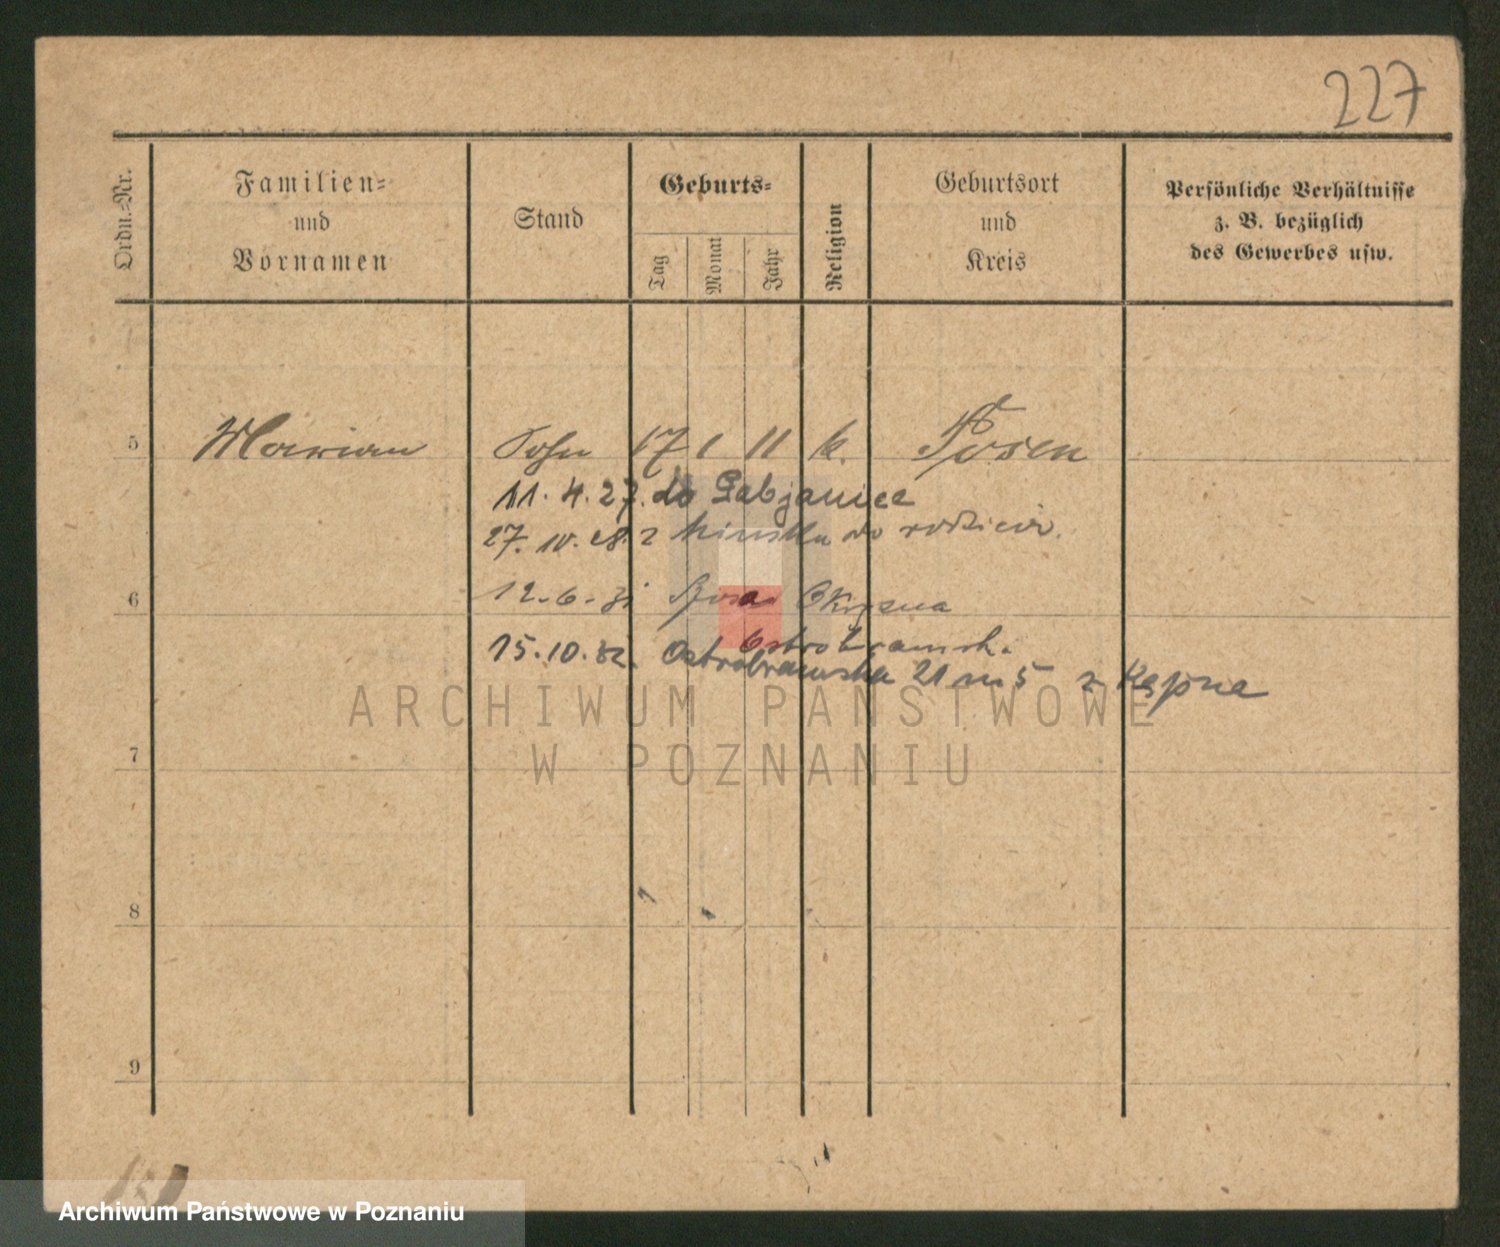 227
Ordn.-Nr.
Familien-
und
Vornamen
Stand
Geburts-
Tag
Monat
Jahr
Religion
Geburtsort
und
Kreis
Persönliche Verhältnisse
z. B. bezüglich
des Gewerbes usw.
5 Marian Sohn 17 1 11 k. Posen
11. 4. 27. do Pabjanice
27. 10. 28. z do rodziców.
6 12.-6.-31
15.10.32. Ostrobramska 21 m 5 z
ARCHIWUM PAŃSTWOWE
W POZNANIU
7
8
9
Archiwum Państwowe w Poznaniu